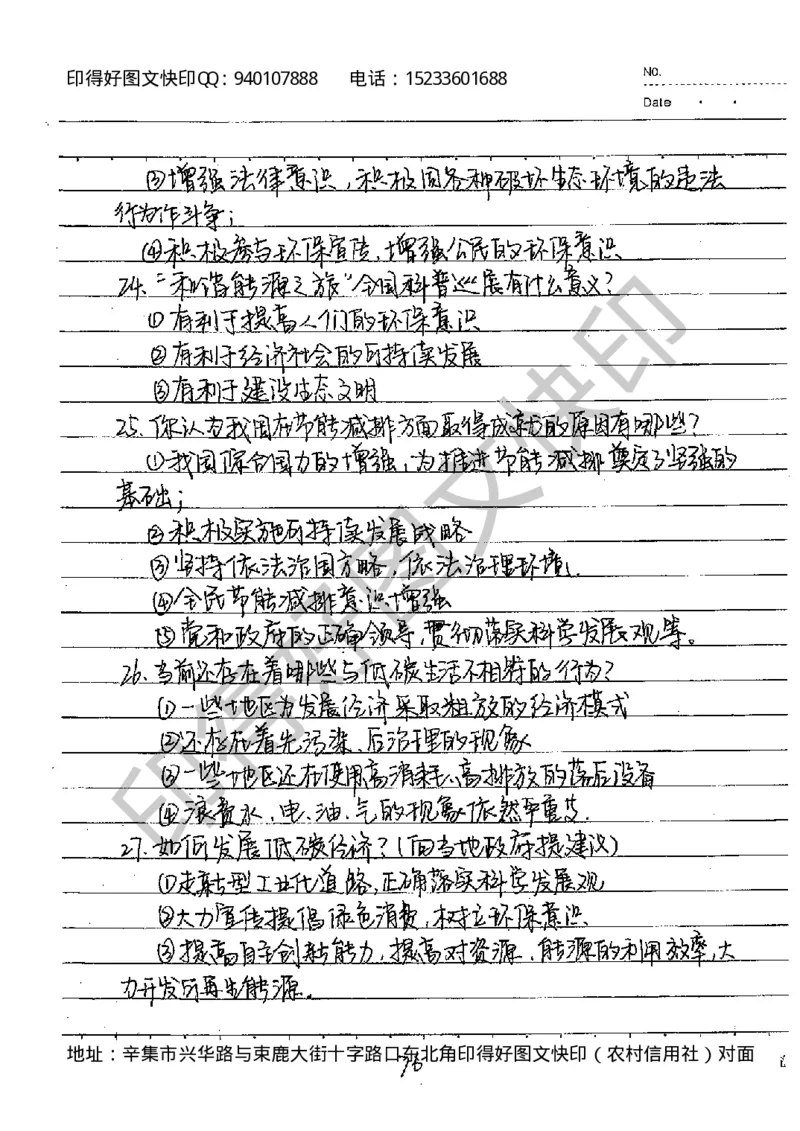 印得好图文快印QQ：940107888 电话：15233601688
No.
Date
③增强法律意识，积极同各种破坏生态环境的违法
行为作斗争；
④积极参与环保宣传，增强公民的环保意识
24、“和谐能源之旅”全国科普巡展有什么意义？
①有利于提高人们的环保意识
②有利于经济社会的可持续发展
③有利于建设生态文明
25、你认为我国在节能减排方面取得成就的原因有哪些？
①我国综合国力的增强，为推进节能减排奠定了坚强的
基础；
②积极实施可持续发展战略
③坚持依法治国方略，依法治理环境.
④全民节能减排意识增强
⑤党和政府的正确领导，贯彻落实科学发展观等。
26、当前还存在着哪些与低碳生活不相符的行为？
①一些地区为发展经济采取粗放的经济模式
②还存在着先污染、后治理的现象
③一些地区还在使用高消耗、高排放的落后设备
④浪费水、电、油、气的现象依然严重.
27、如何发展低碳经济？（向当地政府提建议）
①走新型工业化道路，正确落实科学发展观
②大力宣传提倡绿色消费，树立环保意识
③提高自主创新能力，提高对资源、能源的利用效率，大
力开发可再生能源。
地址：辛集市兴华路与束鹿大街十字路口东北角印得好图文快印（农村信用社）对面
印得好图文快印